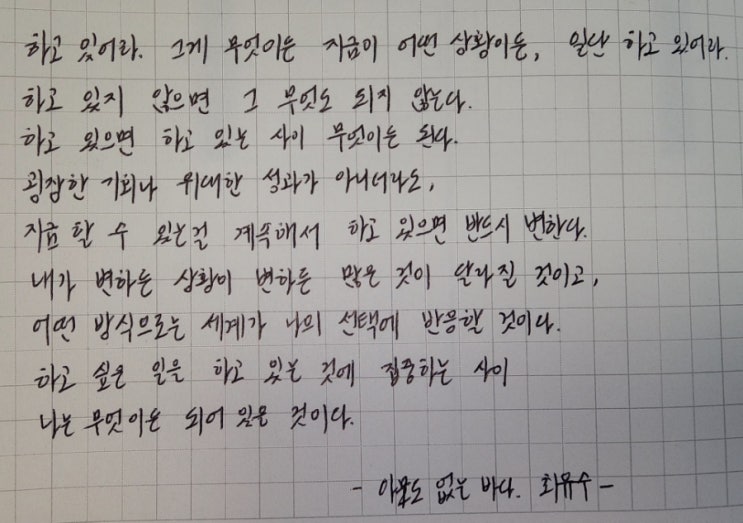 하고 있어라. 그게 무엇이든 지금이 어떤 상황이든, 일단 하고 있어라.
하고 있지 않으면 그 무엇도 되지 않는다.
하고 있으면 하고 있는 사이 무엇이든 된다.
굉장한 기회나 위대한 성과가 아니더라도,
지금 할 수 있는걸 계속해서 하고 있으면 반드시 변한다.
내가 변하든 상황이 변하든 많은 것이 달라질 것이고,
어떤 방식으로든 세계가 나의 선택에 반응할 것이다.
하고 싶은 일을 하고 있는 것에 집중하는 사이
나는 무엇이든 되어 있을 것이다.
- 아무도 없는 바다. 최유수 -